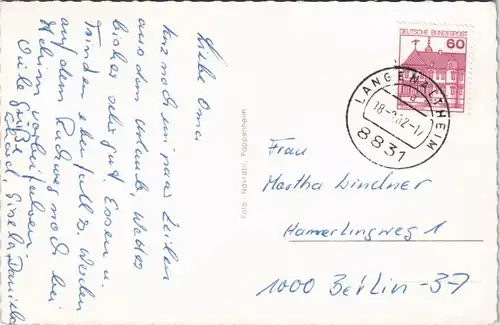 Liebe Oma!
Kurz noch ein paar Zeilen
aus dem Urlaub, Wetter
bisher sehr gut. Essen u.
Trinken ebenfalls. Werden
auf dem Rückweg noch bei
Helmi vorbeifahren
Viele Grüße
Gisela, Daniela
Foto - Navratil, Pappenheim
DEUTSCHE BUNDESPOST
60
LANGENALTHEIM
a
8831
Frau
Martha Lindner
Hamerlingweg 1
1000 Berlin-37